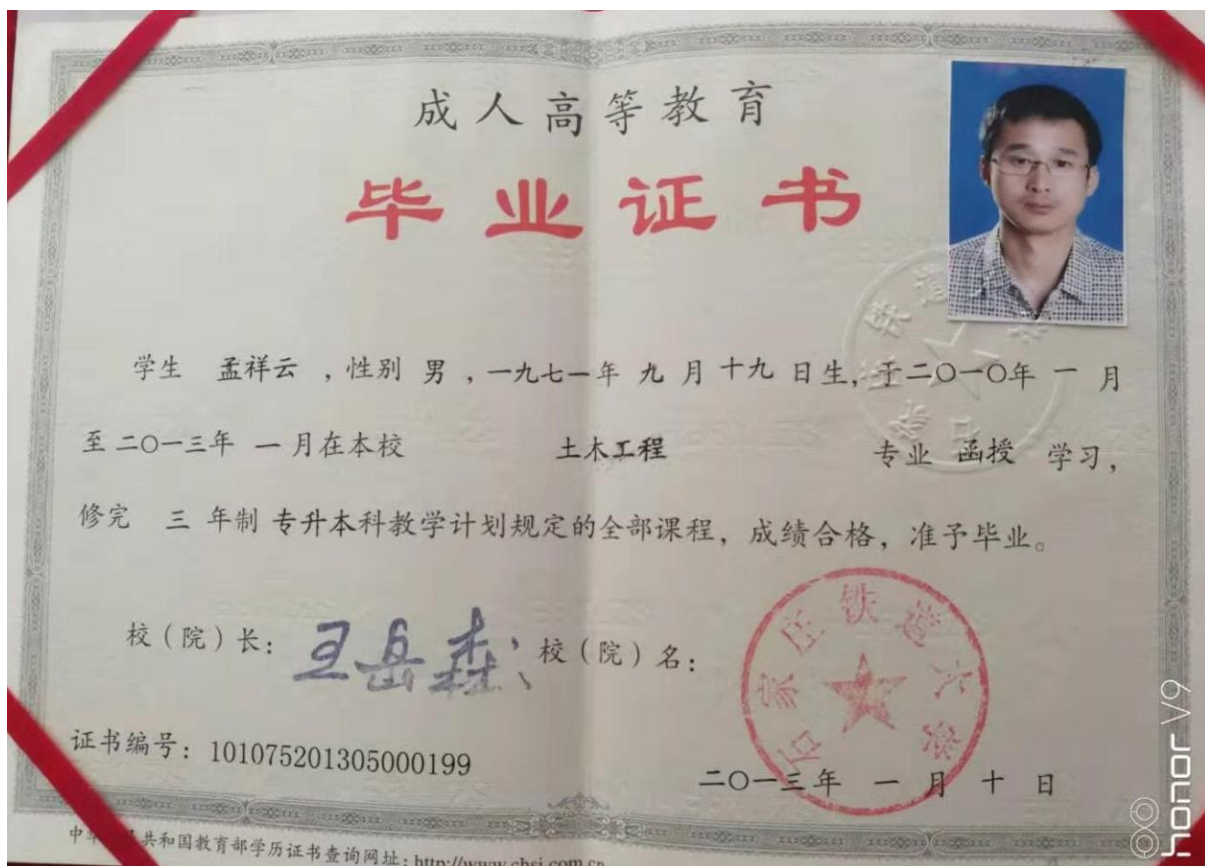 成人高等教育
毕业证书
学生 孟祥云 ，性别 男 ，一九七一年 九 月 十九 日生，于二〇一〇年 一 月
至二〇一三年 一 月在本校 土木工程 专业 函授 学习，
修完 三 年制 专升本科教学计划规定的全部课程，成绩合格，准予毕业。
校（院）长：王岳森 校（院）名：
石家庄铁道大学
证书编号：101075201305000199
二〇一三年 一 月 十 日
中华 共和国教育部学历证书查询网址：http://www.chsi.com.cn
honor V9